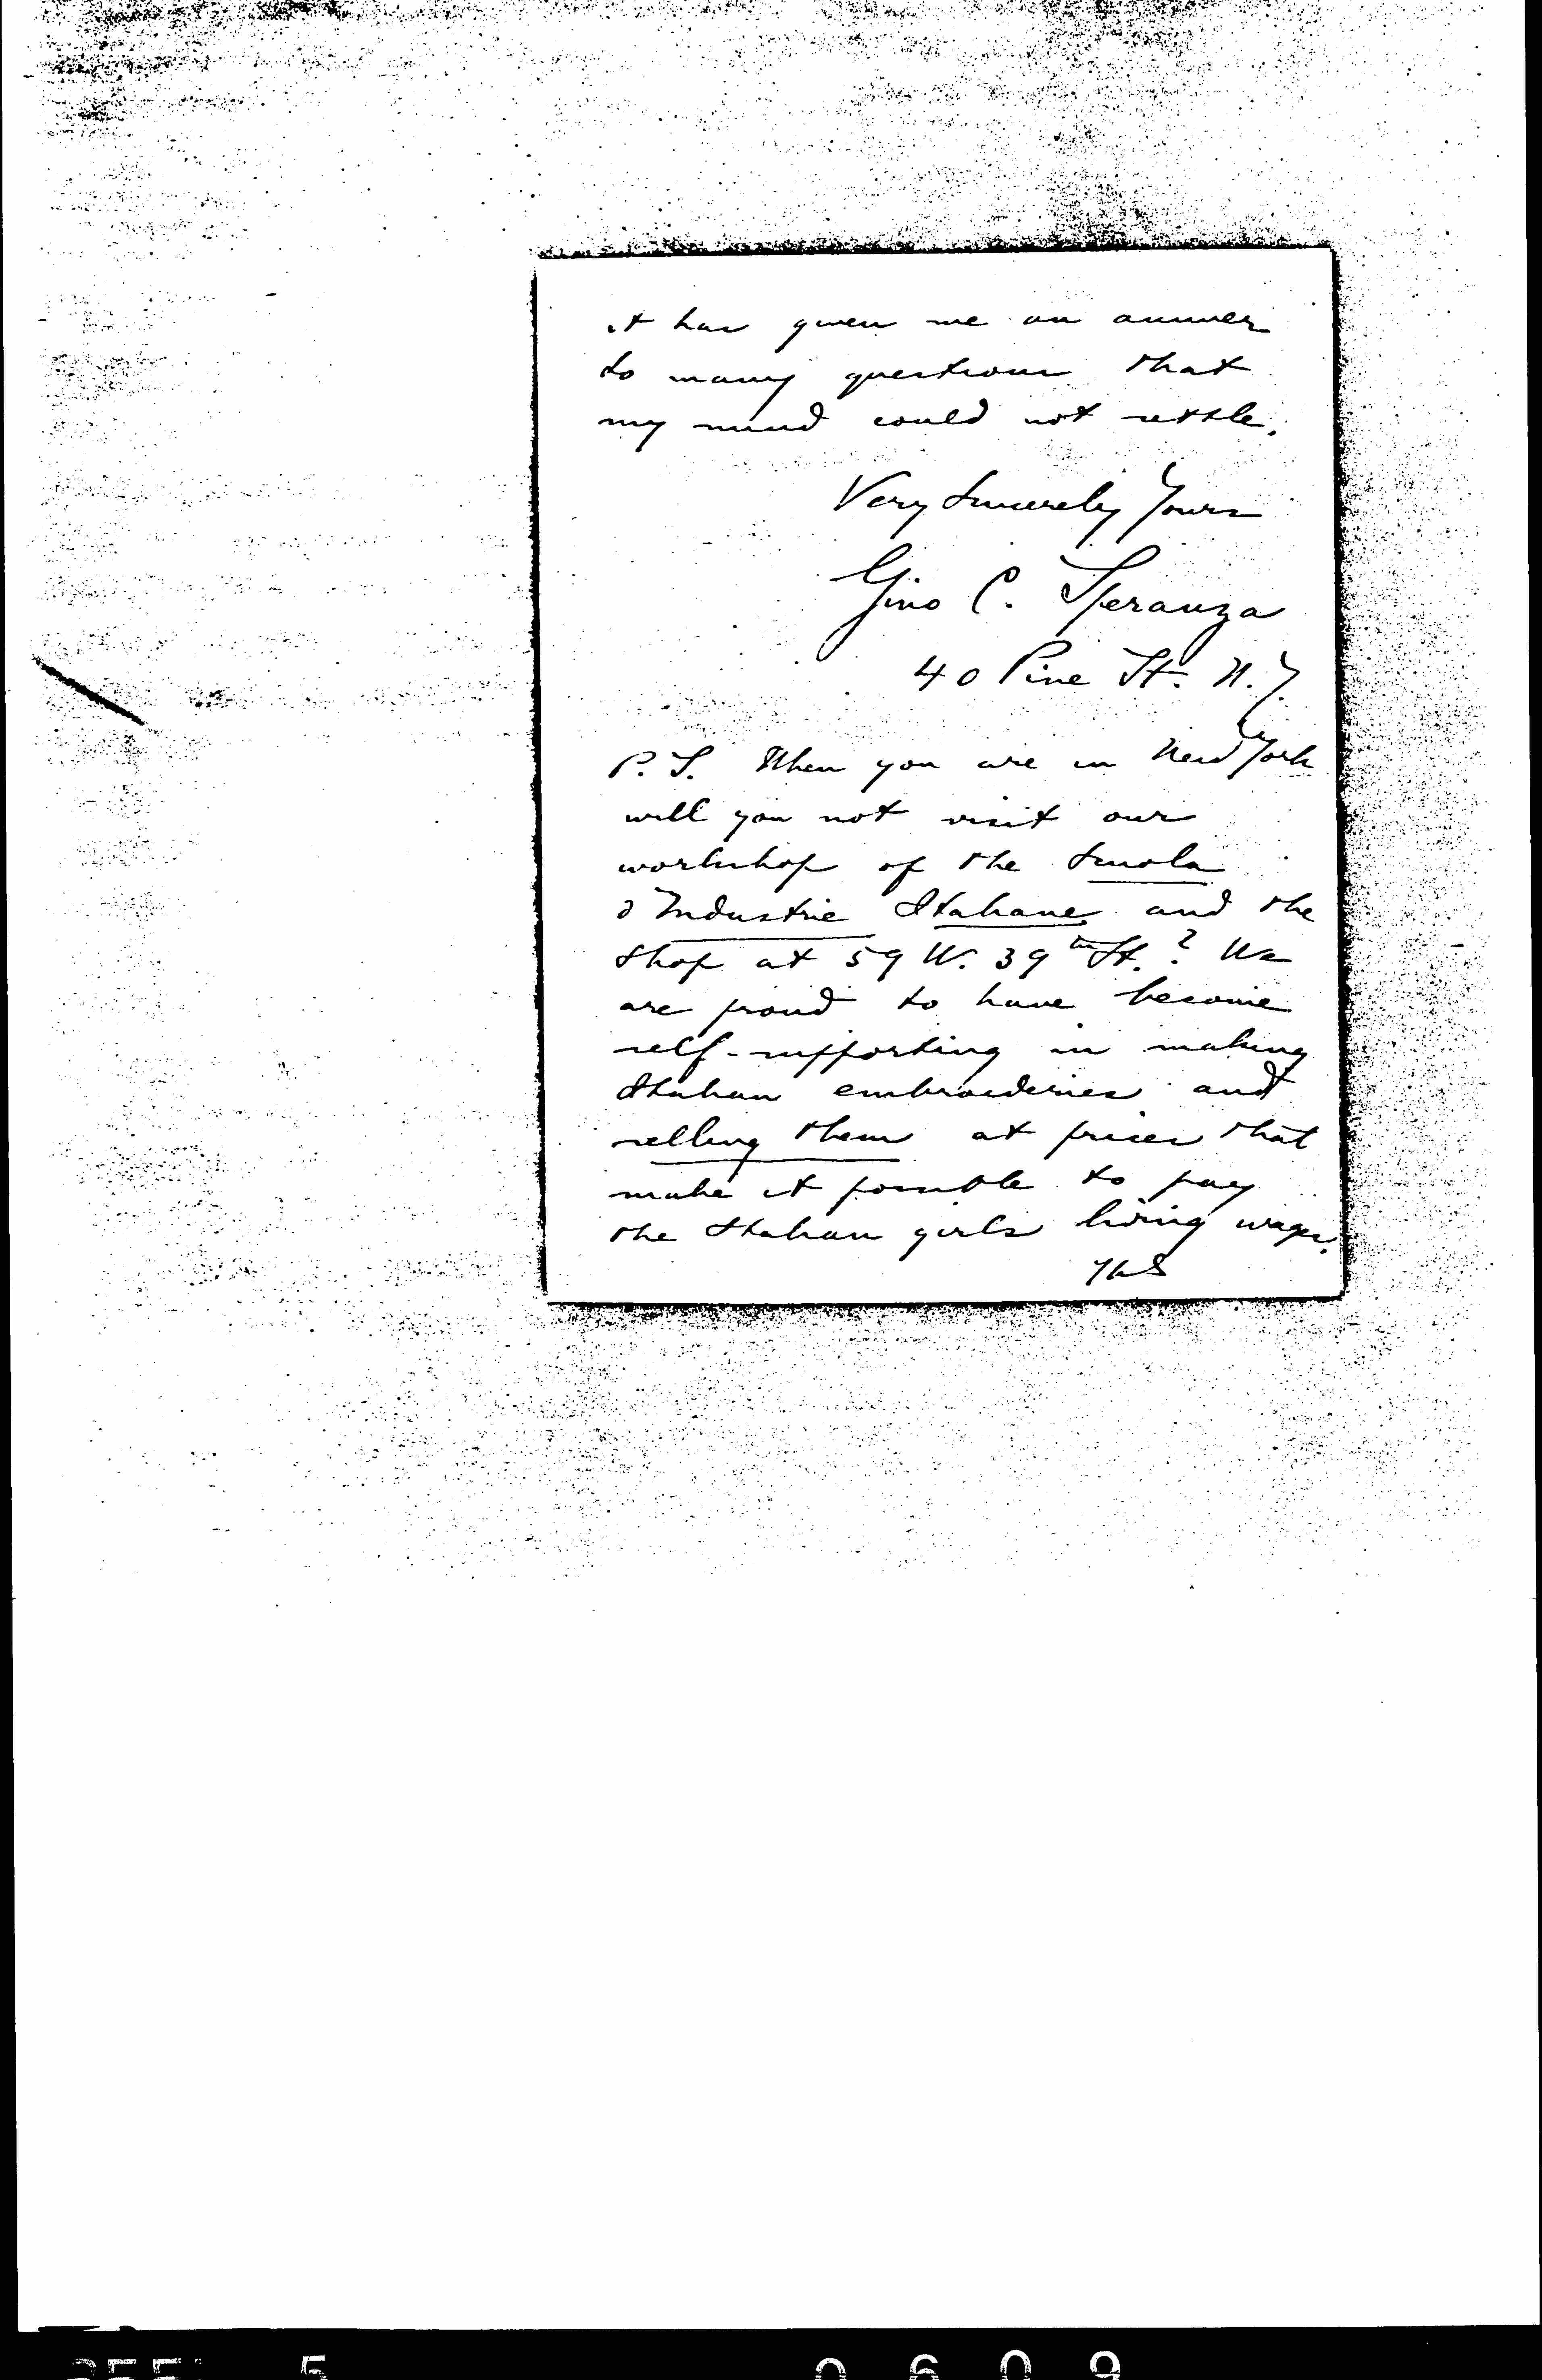 it has given me an answer
to many questions that
my mind could not settle.
Very Sincerely Yours
Gino C. Speranza
40 Pine St. N.Y.
P.S. When you are in New York
will you not visit our
workshop of the Scuola
d'Industrie Italiane and the
shop at 59 W. 39th St.? We
are proud to have become
self-supporting in making
Italian embroideries and
selling them at prices that
make it possible to pay
the Italian girls living wages.
5 0609